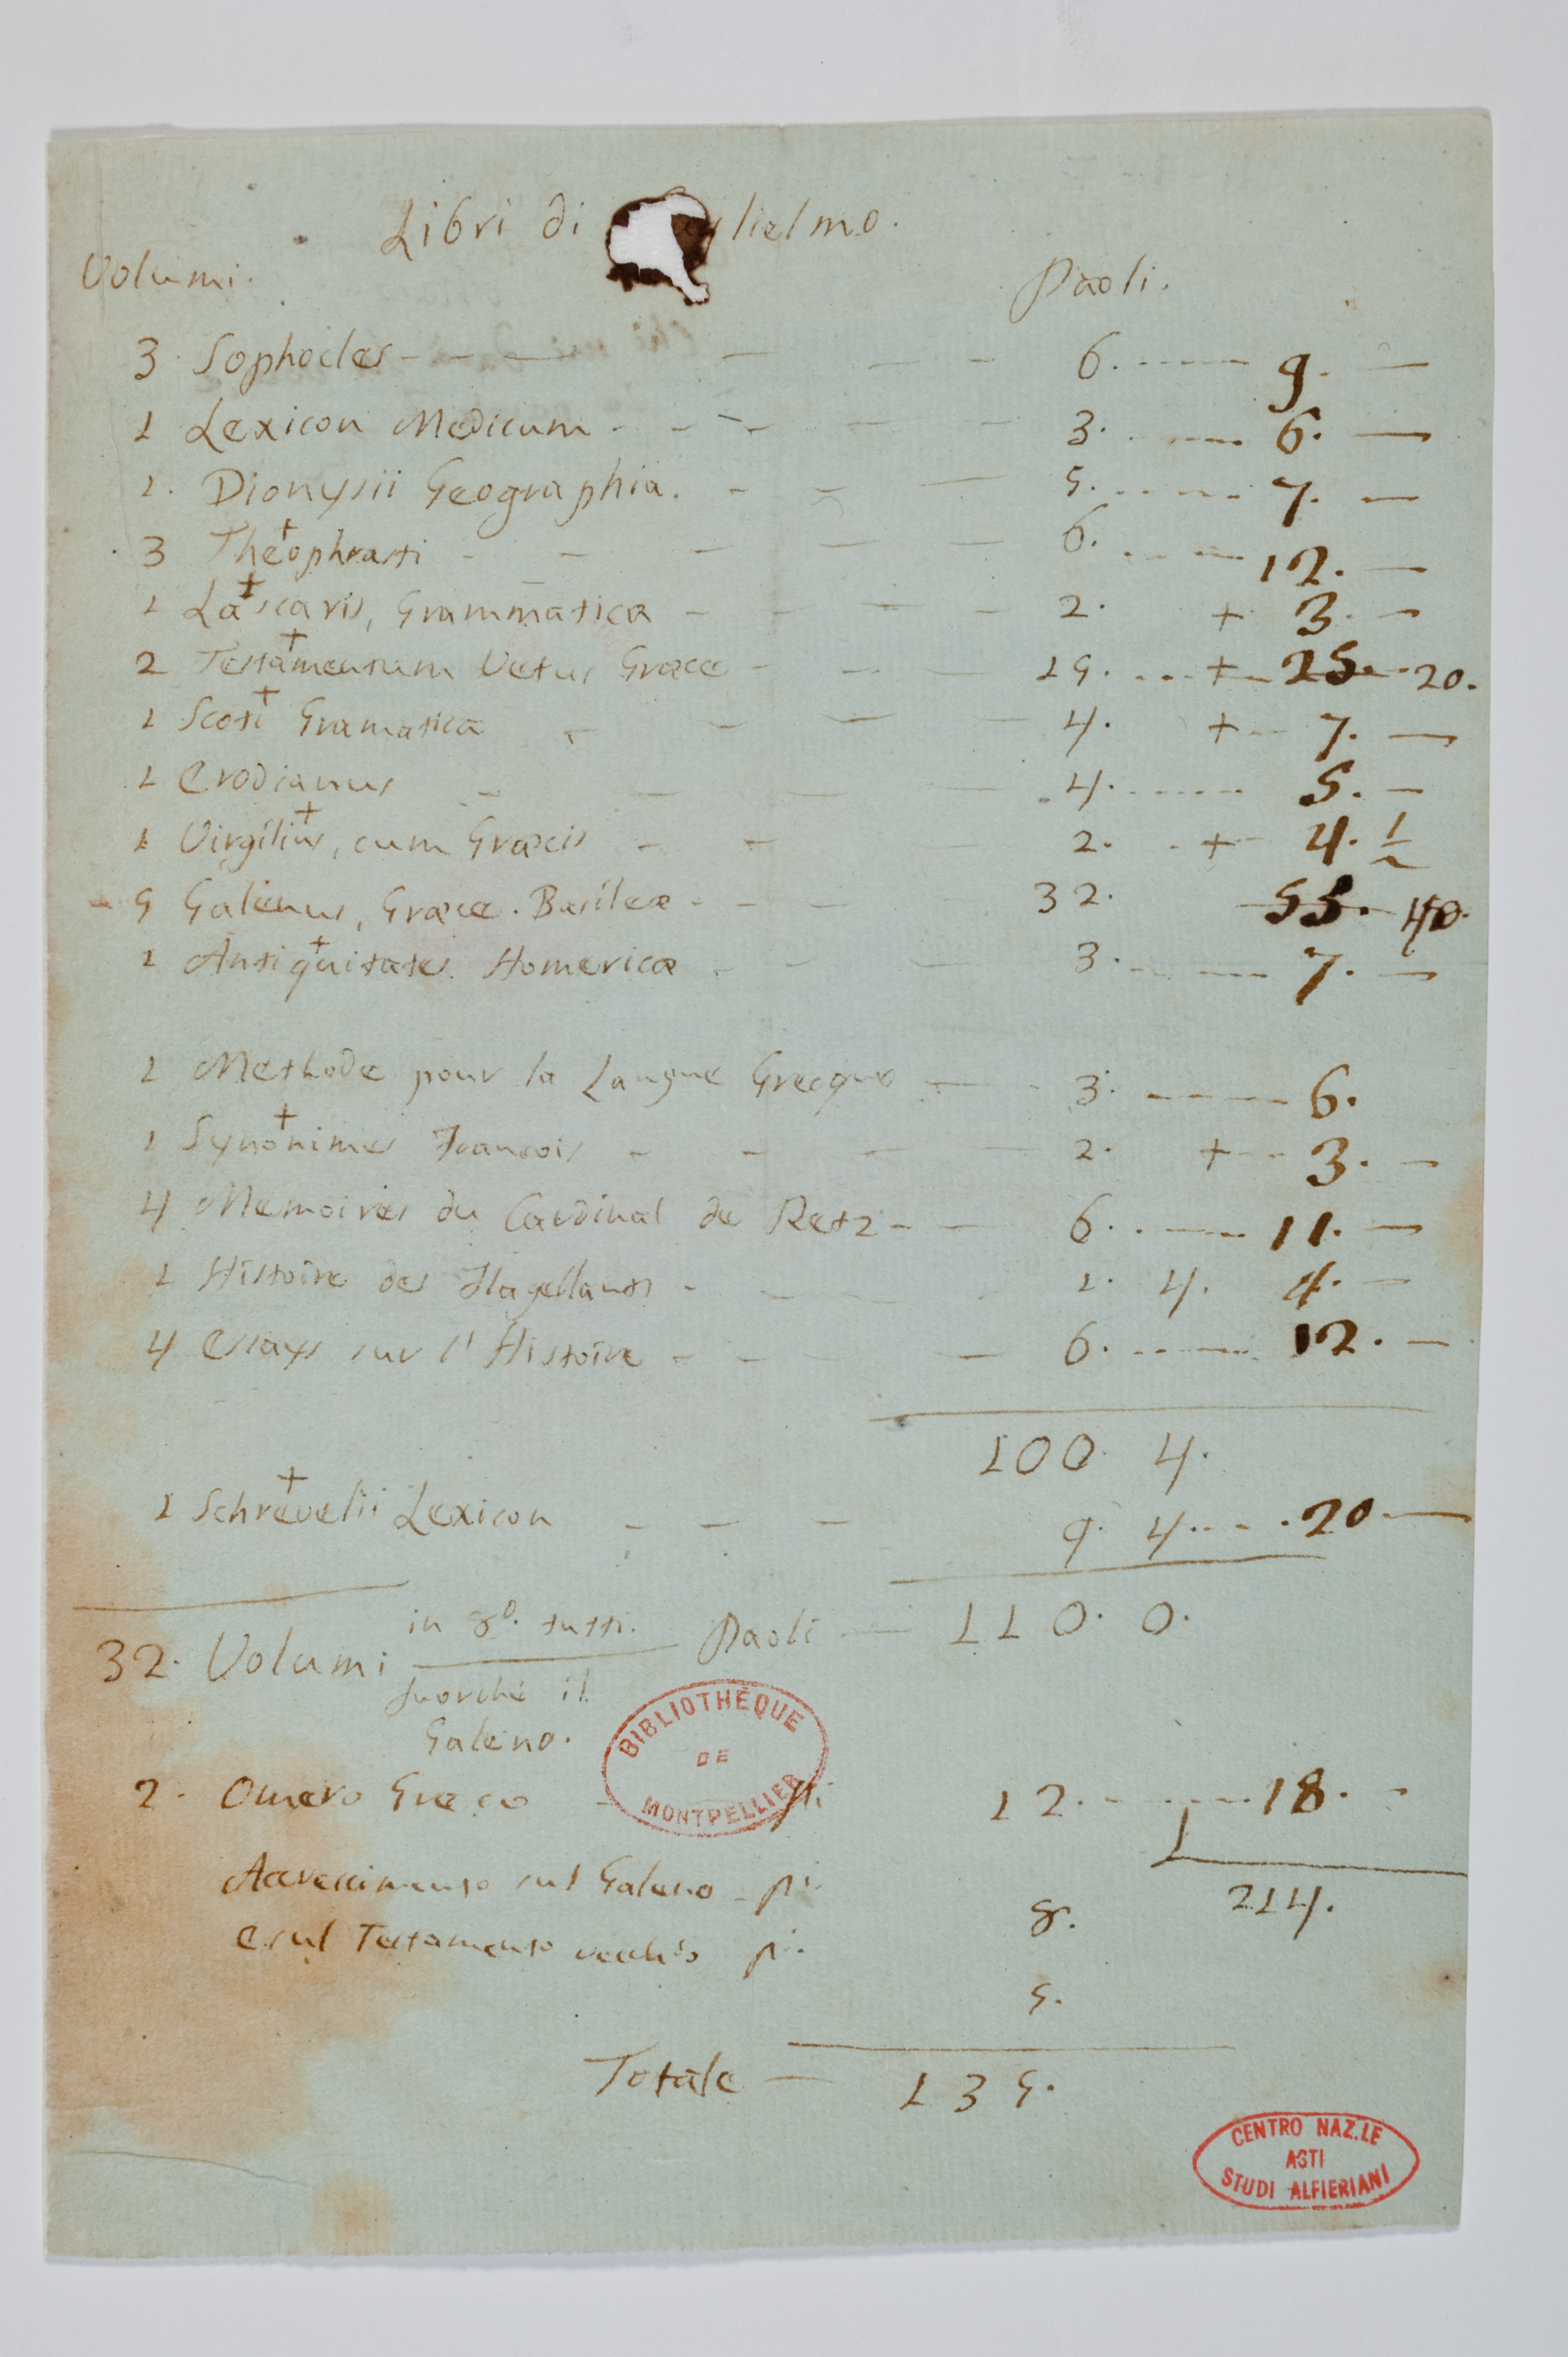 Libri di glielmo.
Volumi. Paoli.
3 Sophocles - - - 6. ---- 9. -
1 Lexicon Medicum - - - 3. ---- 6. -
1. Dionysii Geographia. - - - 5. ---- 7. -
3 Theophrasti - - - 6. ---- 12. -
1 Lascaris, Grammatica - - - 2. + 3. -
2 Testamentum Vetus Græce - - - 15. --- + 25. 20.
1 Scoti Gramatica - - - 4. + 7. -
1 Erodianus - - - 4. ---- 5. -
1 Virgilius, cum Græcis - - - 2. + 4. 1/2
5 Galenus, Græce. Basileæ - - - 32. 55. 40.
1 Antiquitates Homericæ - - - 3. ---- 7. -
1 Methode pour la Langue Grecque - - 3. ---- 6.
1 Synonimes Francois - - - 2. + 3. -
4 Memoires du Cardinal de Retz - - 6. ---- 11. -
1 Histoire des Flagellants - - - 1. 4. 4. -
4 Essays sur l'Histoire - - - 6. ---- 12. -
100. 4.
1 Schrevelii Lexicon - - - 9. 4. --- 20 -
32. Volumi in 8º. tutti. Paoli - 110. 0.
fuorchè il
Galeno.
BIBLIOTHÈQUE
DE
MONTPELLIER
2. Omero Greco - pi. 12. ---- 18. -
Accrescimento sul Galeno - pi. 8. 214.
E sul Testamento vecchio pi. 5.
Totale - 135.
CENTRO NAZ.LE
ASTI
STUDI ALFIERIANI